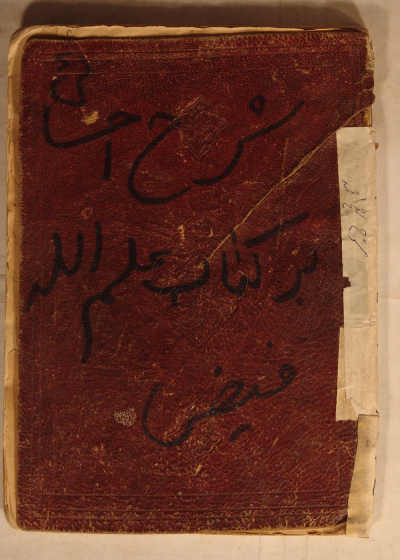 شرح احسائی
بر کتاب علم الله
فیض